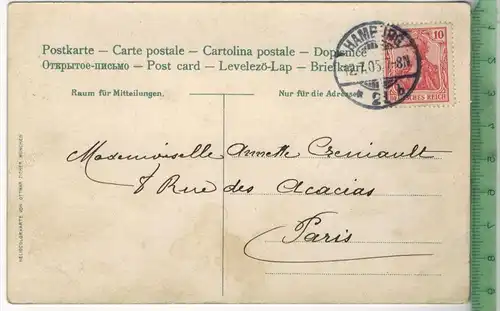 Postkarte – Carte postale – Cartolina postale – Dopisnice
Открытое-письмо – Post card – Levelező-Lap – Briefkaart
HAMBURG
12.7.05. 7-8N
* 2 b
10
DEUTSCHES REICH
Raum für Mitteilungen.
Nur für die Adresse.
Mademoiselle Annette
8 Rue des Acacias
Paris
HELIOCOLORKARTE VON OTTMAR ZIEHER, MÜNCHEN